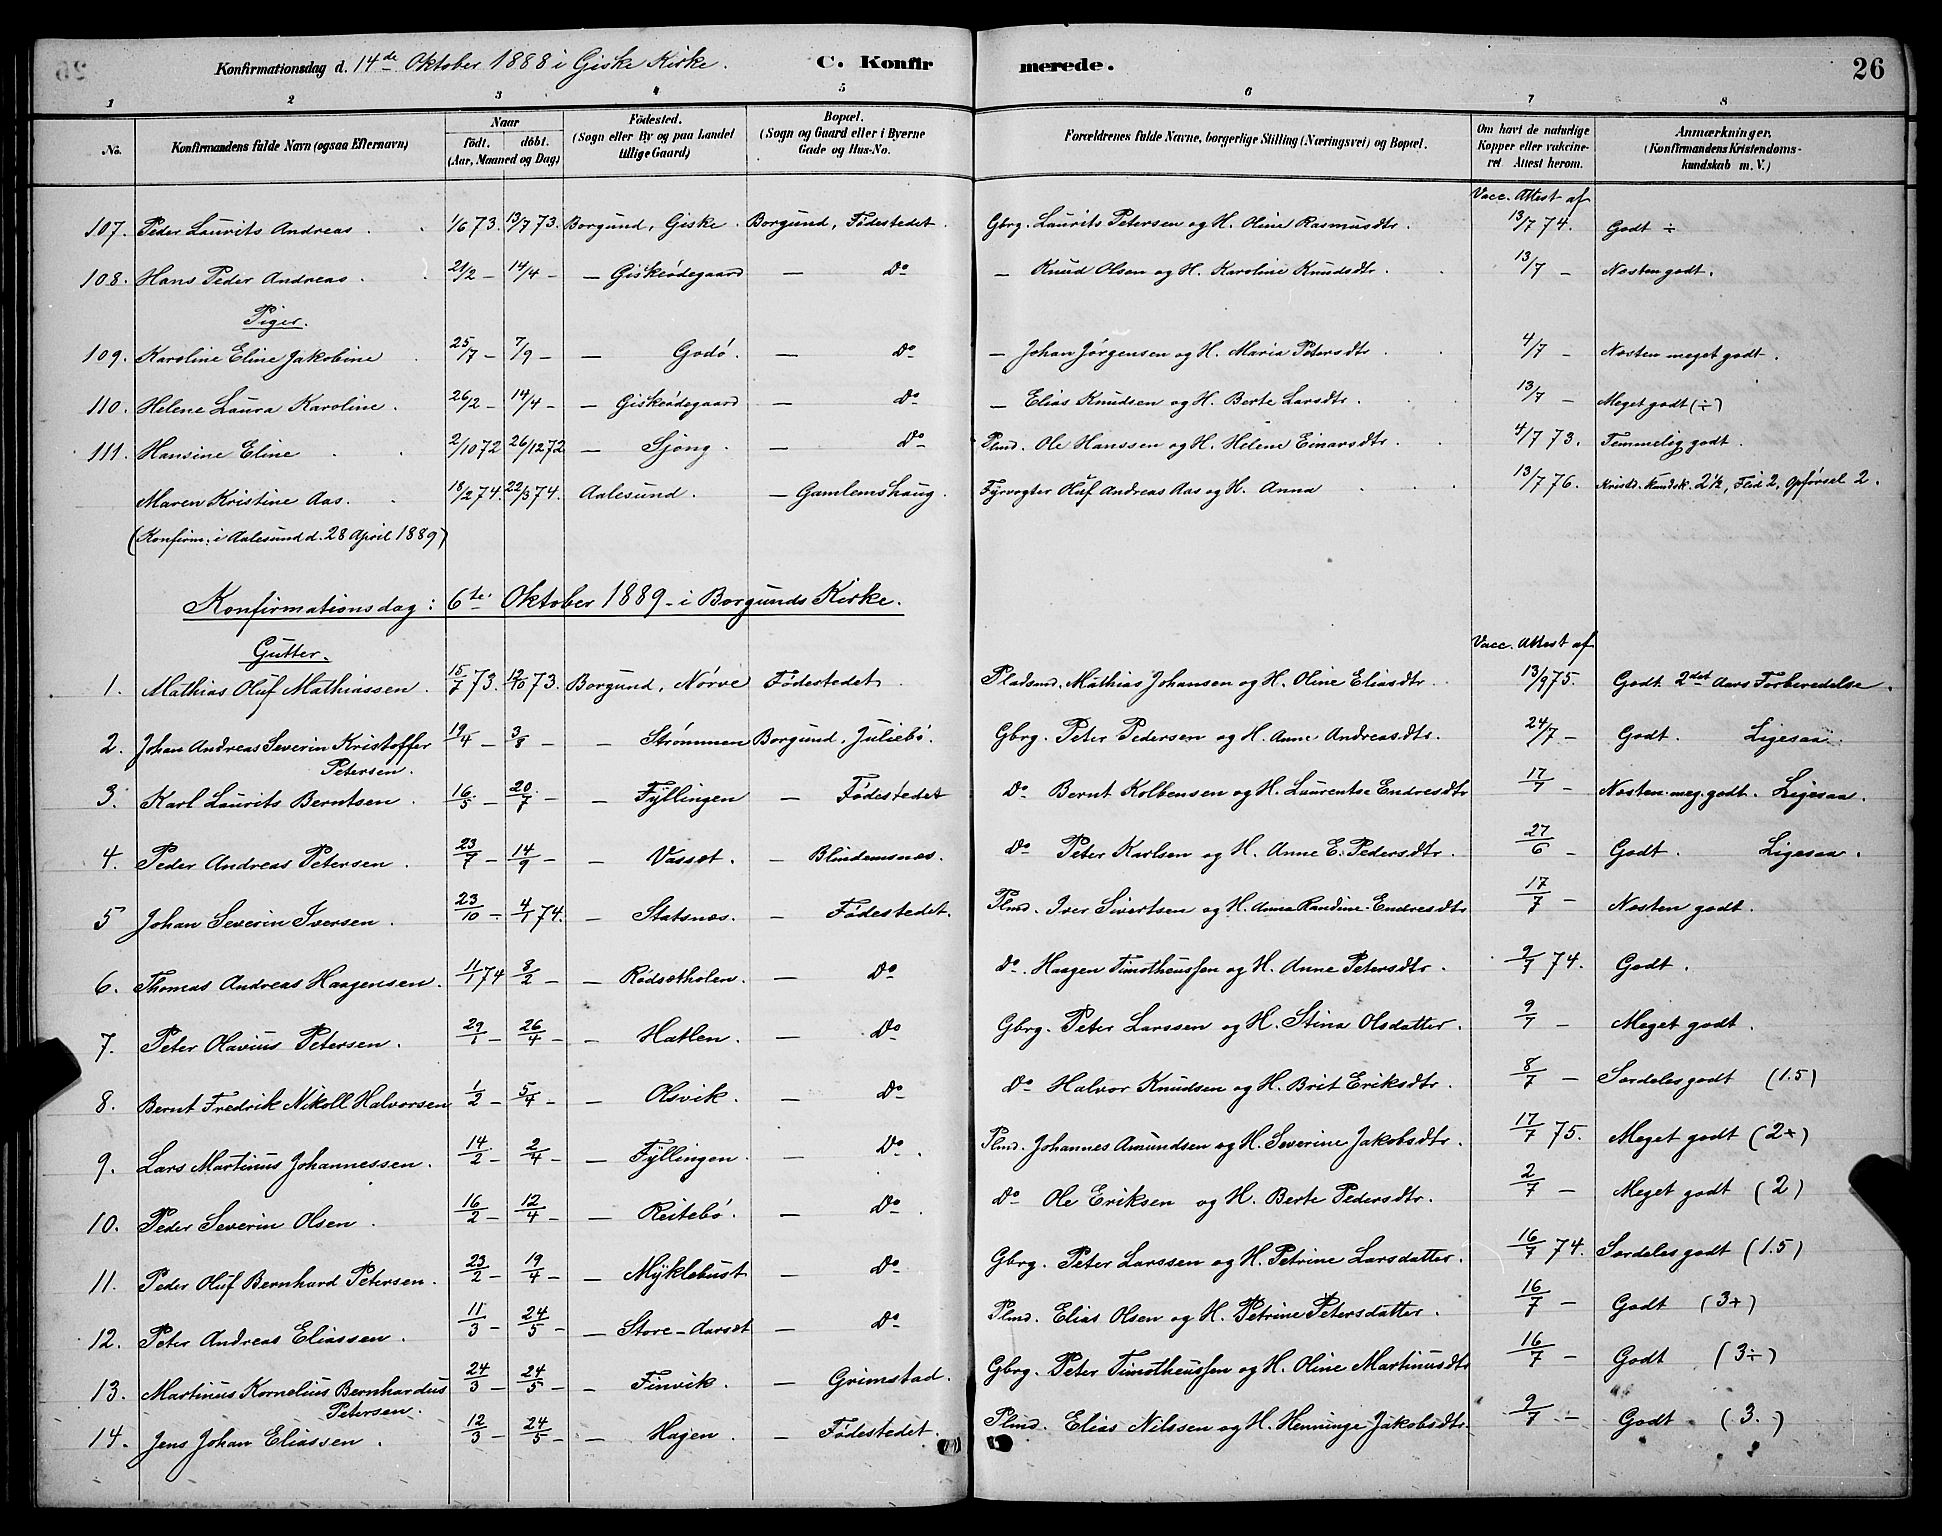 Konfirmationsdag d. 14de Oktober 1888 i Giske Kirke. C. Konfirmerede. 26
1 2 3 4 5 6 7 8
No. Konfirmandens fulde Navn (ogsaa Efternavn) Naar født. døbt. (Aar, Maaned og Dag) Fødested. (Sogn eller By og paa Landet tillige Gaard) Bopæl. (Sogn og Gaard eller i Byerne Gade og Hus-No. Forældrenes fulde Navne, borgerlige Stilling (Næringsvei) og Bopæl. Om havt de naturlige Kopper eller vakcineret Attest herom. Anmærkninger. (Konfirmandens Kristendomskundskab m. V.)
Vacc. Attest af
107. Peder Laurits Andreas . 1/6 73. 13/7 73. Borgund, Giske. Borgund, Fødestedet. Gbrg. Laurits Petersen og H. Oline Rasmusdtr. 13/7 74. Godt ÷
108. Hans Peder Andreas . 21/2 - 14/4 - — Giskeødegaard — Do — Knud Olsen og H. Karoline Knudsdtr. 13/7 - Næsten godt.
Piger.
109. Karoline Eline Jakobine 25/7 - 7/9 - — Godø. — Do — Johan Jørgensen og H. Maria Petersdtr. 4/7 - Næsten meget godt.
110. Helene Laura Karoline. 26/2 - 14/4 - — Giskeødegaard — Do — Elias Knudsen og H. Berte Larsdtr. 13/7 - Meget godt (÷)
111. Hansine Eline 2/10 72 26/12 72 — Sjong. — Do Plmd. Ole Hanssen og H. Helene Einarsdtr. 4/7 73. Temmelig godt.
Maren Kristine Aas. 18/2 74. 22/3 74. Aalesund. — Gamlemshaug. Fyrvogter Oluf Andreas Aas og H. Anna 13/7 76. Kristd. Kundsk. 2½, Flid 2, Opførsel 2.
(Konfirm. i Aalesund d. 28 April 1889)
Konfirmationsdag: 6te Oktober 1889 - i Borgunds Kirke.
Gutter. Vacc. Attest af
1. Mathias Oluf Mathiassen. 15/7 73. 12/10 73. Borgund, Nørve Fødestedet Pladsmd. Mathias Johansen og H. Oline Eliasdtr. 13/9 75. Godt 2det Aars Forberedelse.
2. Johan Andreas Severin Kristoffer Petersen. 19/4 - 3/8 - — Strømmen Borgund, Juliebø. Gbrg. Peter Pedersen og H. Anne Andreasdtr. 24/7 - Godt. Ligesaa
3. Karl Laurits Berntsen. 16/5 - 20/7 - — Fyllingen — Fødestedet Do Bernt Kolbensen og H. Laurentse Endresdtr 17/7 - Næsten meg. godt. Ligesaa.
4. Peder Andreas Petersen. 23/7 - 14/9 - — Vasset. — Blindemsnæs. Do Peter Karlsen og H. Anne E. Pedersdtr. 27/6 - Godt. Ligesaa.
5 Johan Severin Iversen. 23/10 - 4/1 74. — Statsnæs. — Fødestedet. Plmd. Iver Sivertsen og H. Anna Randine Endresdtr 17/7 - Næsten godt.
6. Thomas Andreas Haagensen. 11/1 74 8/2 - — Rødsætholen. — Do Do. Haagen Timotheussen og H. Anne Petersdtr. 9/7 74. Godt.
7. Peter Olavius Petersen. 29/1 - 26/4 - — Hatlen. — Do Gbrg. Peter Larssen og H. Stina Olsdatter. 9/7 - Meget godt.
8. Bernt Fredrik Nikoll Halvorsen 1/2 - 5/4 - — Olsvik. — Do Do Halvor Knudsen og H. Brit Eriksdtr. 8/7 - Særdeles godt (1.5)
9. Lars Martinus Johannessen. 14/2 - 2/4 - — Fyllingen. — Do. Plmd. Johannes Amundsen og H. Severine Jakobsdtr. 17/7 75. Meget godt (2+)
10. Peder Severin Olsen. 16/2 - 12/4 - — Reitebø. — Do. Do Ole Eriksen og H. Berte Pedersdtr. 2/7 - Meget godt (2)
11. Peder Oluf Bernhard Petersen. 23/2 - 19/4 - — Myklebust — Do Gbrg. Peter Larssen og H. Petrine Larsdatter. 16/7 74. Særdeles godt (1.5)
12. Peter Andreas Eliassen. 11/3 - 24/5 - — Store-Aarset — Do Plmd. Elias Olsen og H. Petrine Petersdatter. 16/7 - Godt (3+)
13. Martinus Kornelius Bernhardus Petersen. 24/3 - 24/5 - — Finvik. — Grimstad. Gbrg. Peter Timotheussen og H. Oline Martinusdtr 16/7 - Godt (3÷)
14. Jens Johan Eliassen. 12/3 - 24/5 - — Hagen. — Fødestedet. Plmd. Elias Nilssen og H. Henninge Jakobsdtr 9/7 - Godt. (3.)